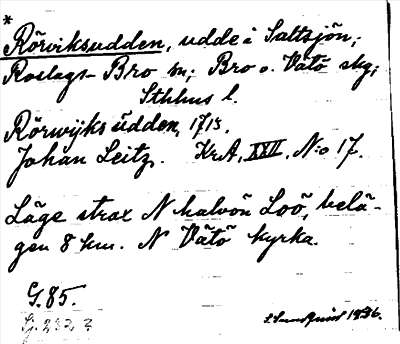 *
Rörviksudden, udde i Saltsjön;
Roslags-Bro sn; Bro o. Vätö skg;
Sthlms l.
Rörwijks udden, 1715,
Johan Leitz. KrA, XXII, N:o 17.
Läge strax N halvön Loö, belä-
gen 8 km. N Vätö kyrka.
G. 85.
S. Sundquist 1936.